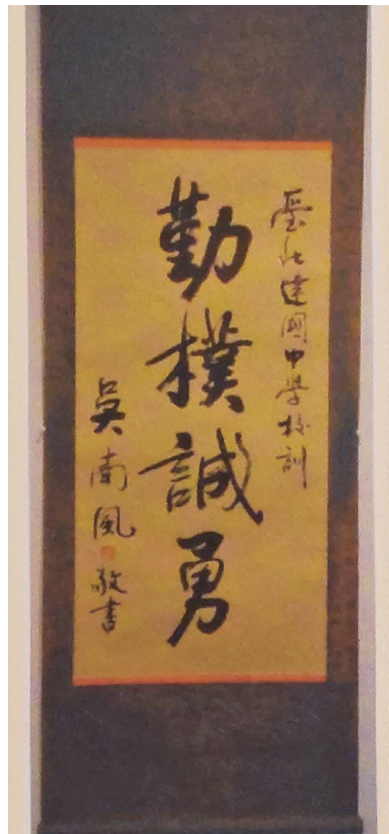 臺北建國中學校訓
勤樸誠勇
吳南風敬書